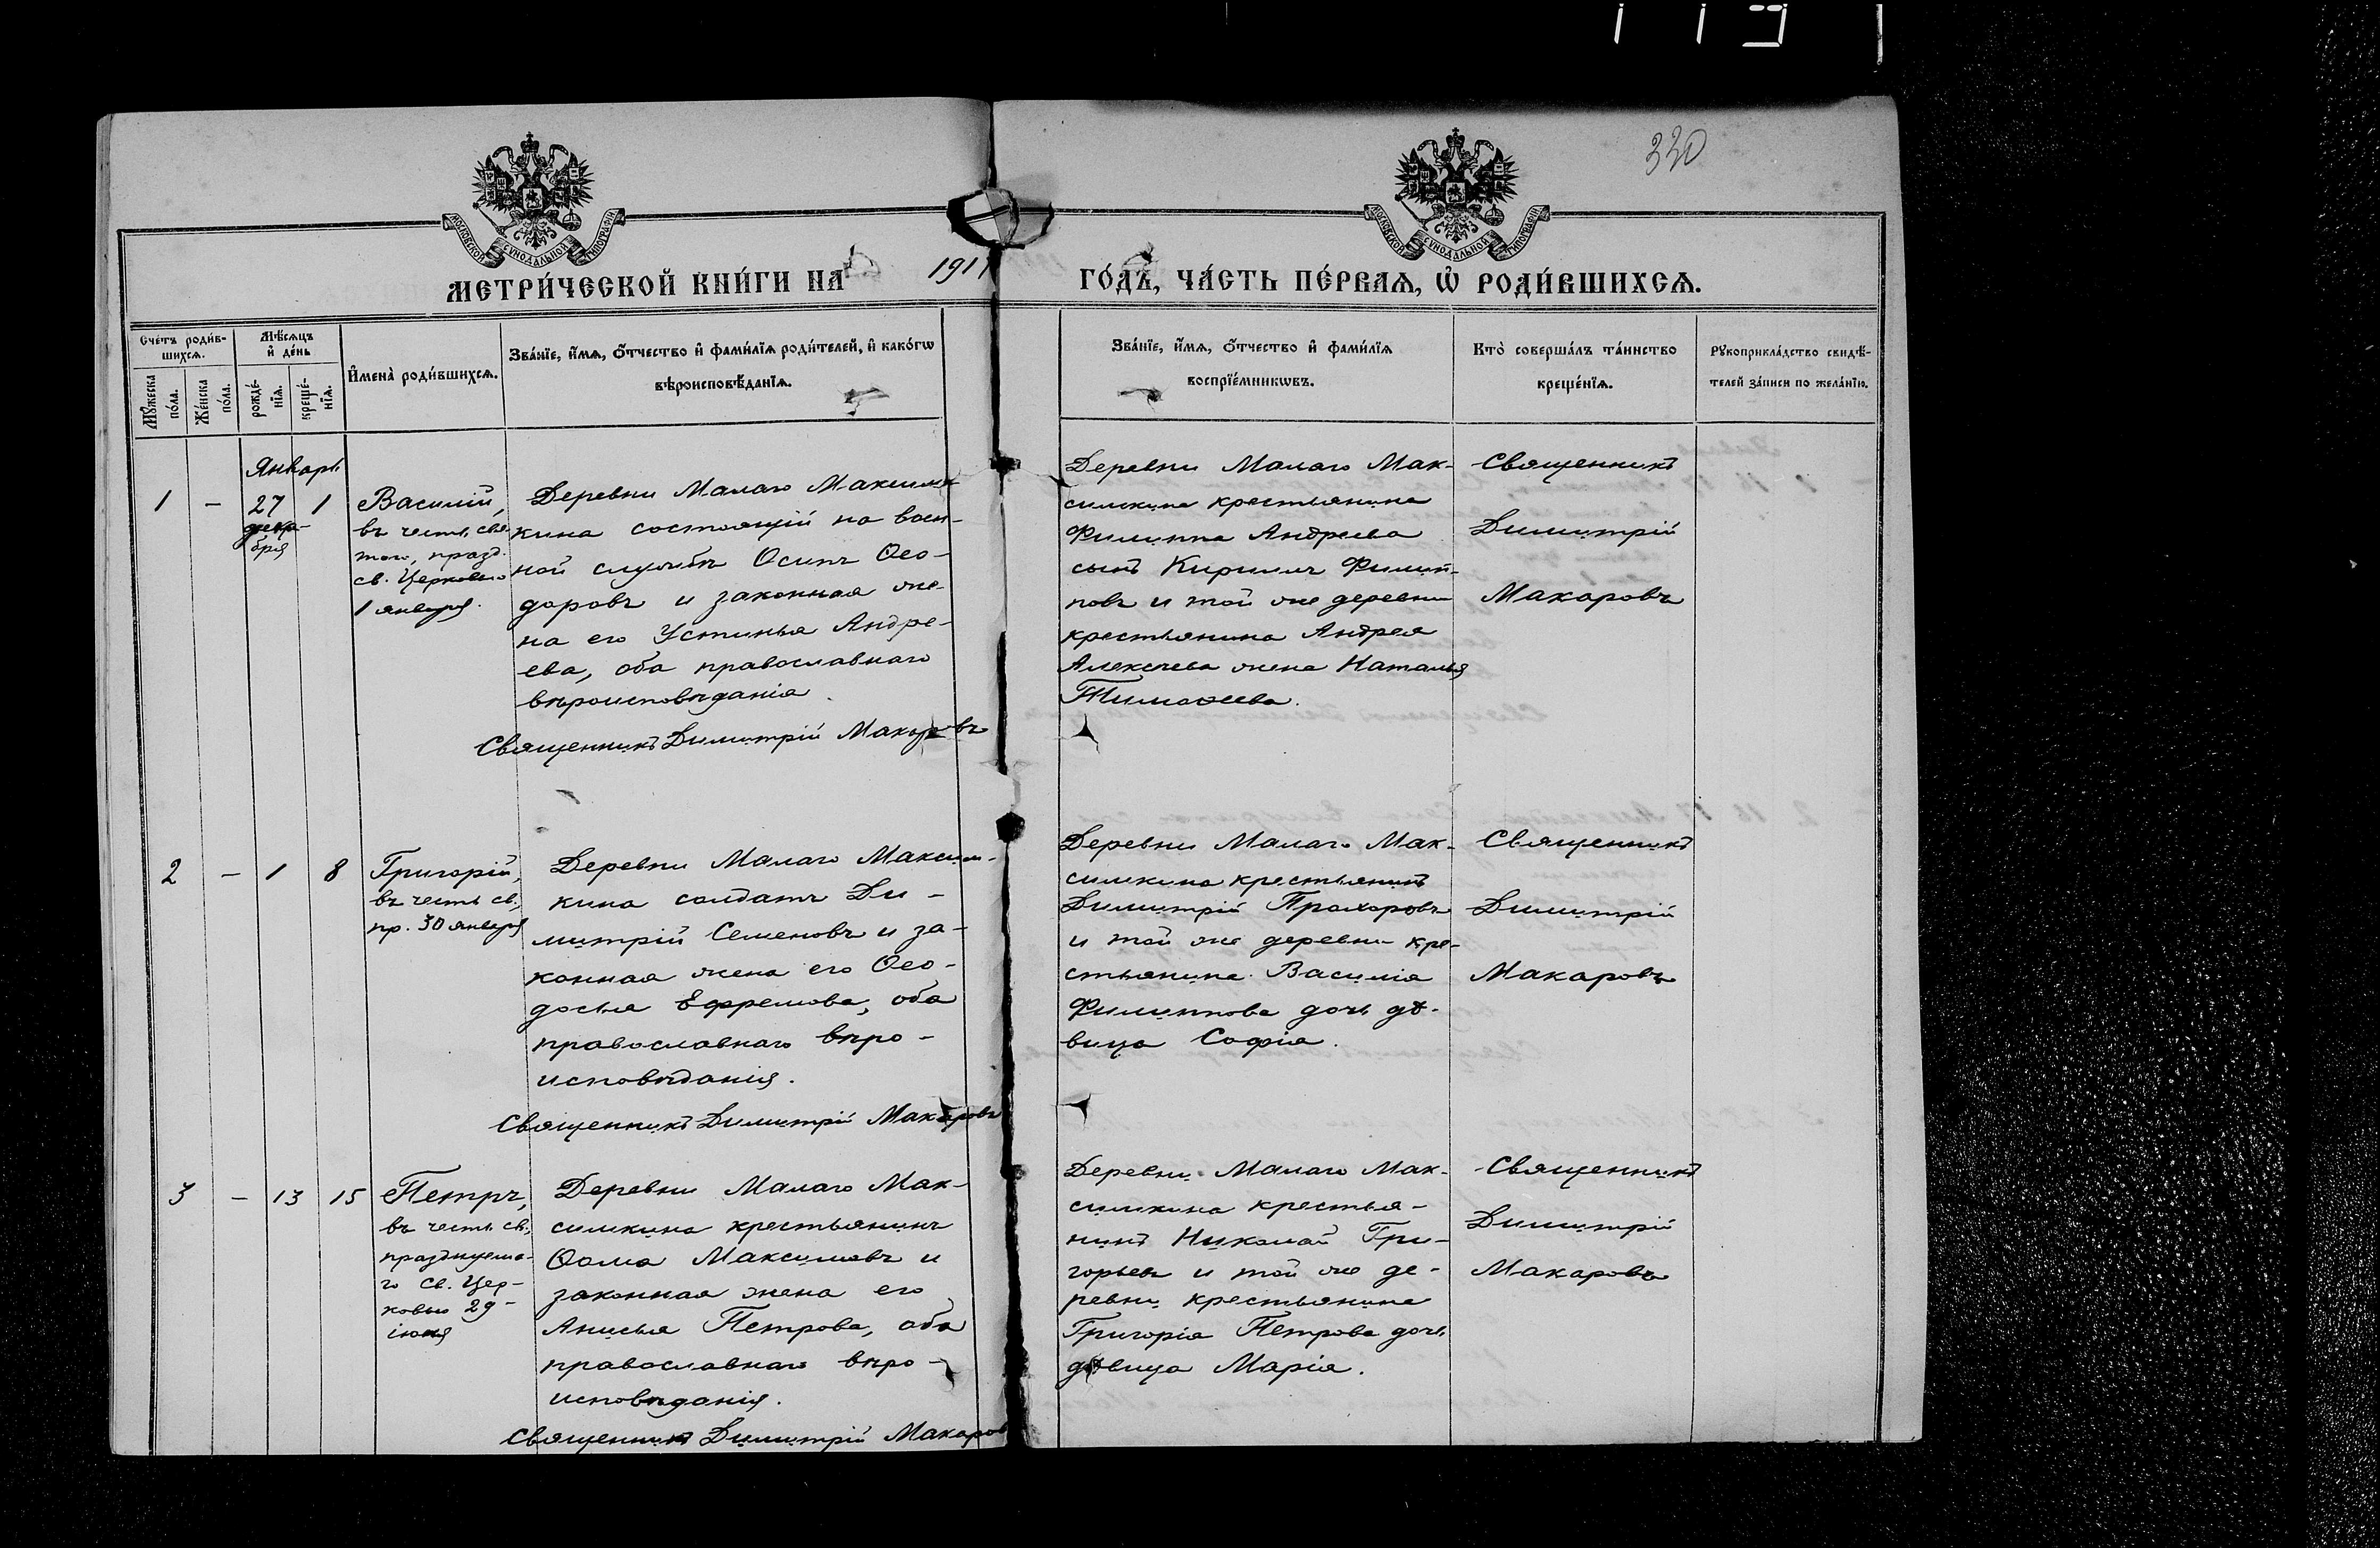 330
МОСКОВСКОЙ СѴНОДАЛЬНОЙ ТИПОГРАФІИ
МОСКОВСКОЙ СѴНОДАЛЬНОЙ ТИПОГРАФІИ
МЕТРИ́ЧЕСКОЙ КНИ́ГИ НА 1911 ГО́ДЪ, ЧА́СТЬ ПЕ́РВАѦ, Ѡ҆ РОДИ́ВШИХСѦ.
Сче́тъ роди́в-
шихсѧ.
Мꙋ́жеска
по́ла.
Же́нска
по́ла.
Мѣ́сѧцъ
и҆ де́нь
рожде́-
нїѧ.
креще́-
нїѧ.
И҆мена̀ роди́вшихсѧ.
Зва́нїе, и҆́мѧ, ѻ҆́тчество и҆ фами́лїѧ роди́телей, и҆ како́гѡ
вѣроисповѣ́данїѧ.
Зва́нїе, и҆́мѧ, ѻ҆́тчество и҆ фами́лїѧ
воспрїе́мникѡвъ.
Кто̀ соверша́лъ та́инство
креще́нїѧ.
Рꙋкоприкла́дство свидѣ́-
телей за́писи по жела́нїю.
Январь
1 - 27 1
декабря
Василій,
въ честь свя
того, празд.
св. Церковью
1 января.
Деревни Малаго Максим
кина состоящій на воен-
ной службѣ Осипъ Ѳео-
доровъ и законная же-
на его Устинья Андре-
ева, оба православнаго
вѣроисповѣданія.
Священникъ Димитрій Макаровъ
Деревни Малаго Мак-
симкина крестьянина
Филиппа Андреева
сынъ Кириллъ Филип-
повъ и той же деревни
крестьянина Андрея
Алексѣева жена Наталья
Тимоѳеева.
Священникъ
Димитрій
Макаровъ
2 - 1 8
Григорій,
въ честь св.,
пр. 30 января
Деревни Малаго Максим-
кина солдатъ Ди-
митрій Семеновъ и за-
конная жена его Ѳео-
досья Ефремова, оба
православнаго вѣро-
исповѣданія.
Священникъ Димитрій Макаровъ
Деревни Малаго Мак-
симкина крестьянинъ
Димитрій Прохоровъ
и той же деревни кре-
стьянина Василія
Филиппова дочь дѣ-
вица Софія.
Священникъ
Димитрій
Макаровъ
3 - 13 15
Петръ,
въ честь св.,
празднуема-
го св. Цер-
ковью 29-
іюня
Деревни Малаго Мак-
симкина крестьянинъ
Ѳома Максимовъ и
законная жена его
Анисья Петрова, оба
православнаго вѣро-
исповѣданія.
Священникъ Димитрій Макаров
Деревни Малаго Мак-
симкина крестья-
нинъ Николай Гри-
горьевъ и той же де-
ревни крестьянина
Григорія Петрова дочь
дѣвица Марія.
Священникъ
Димитрій
Макаровъ